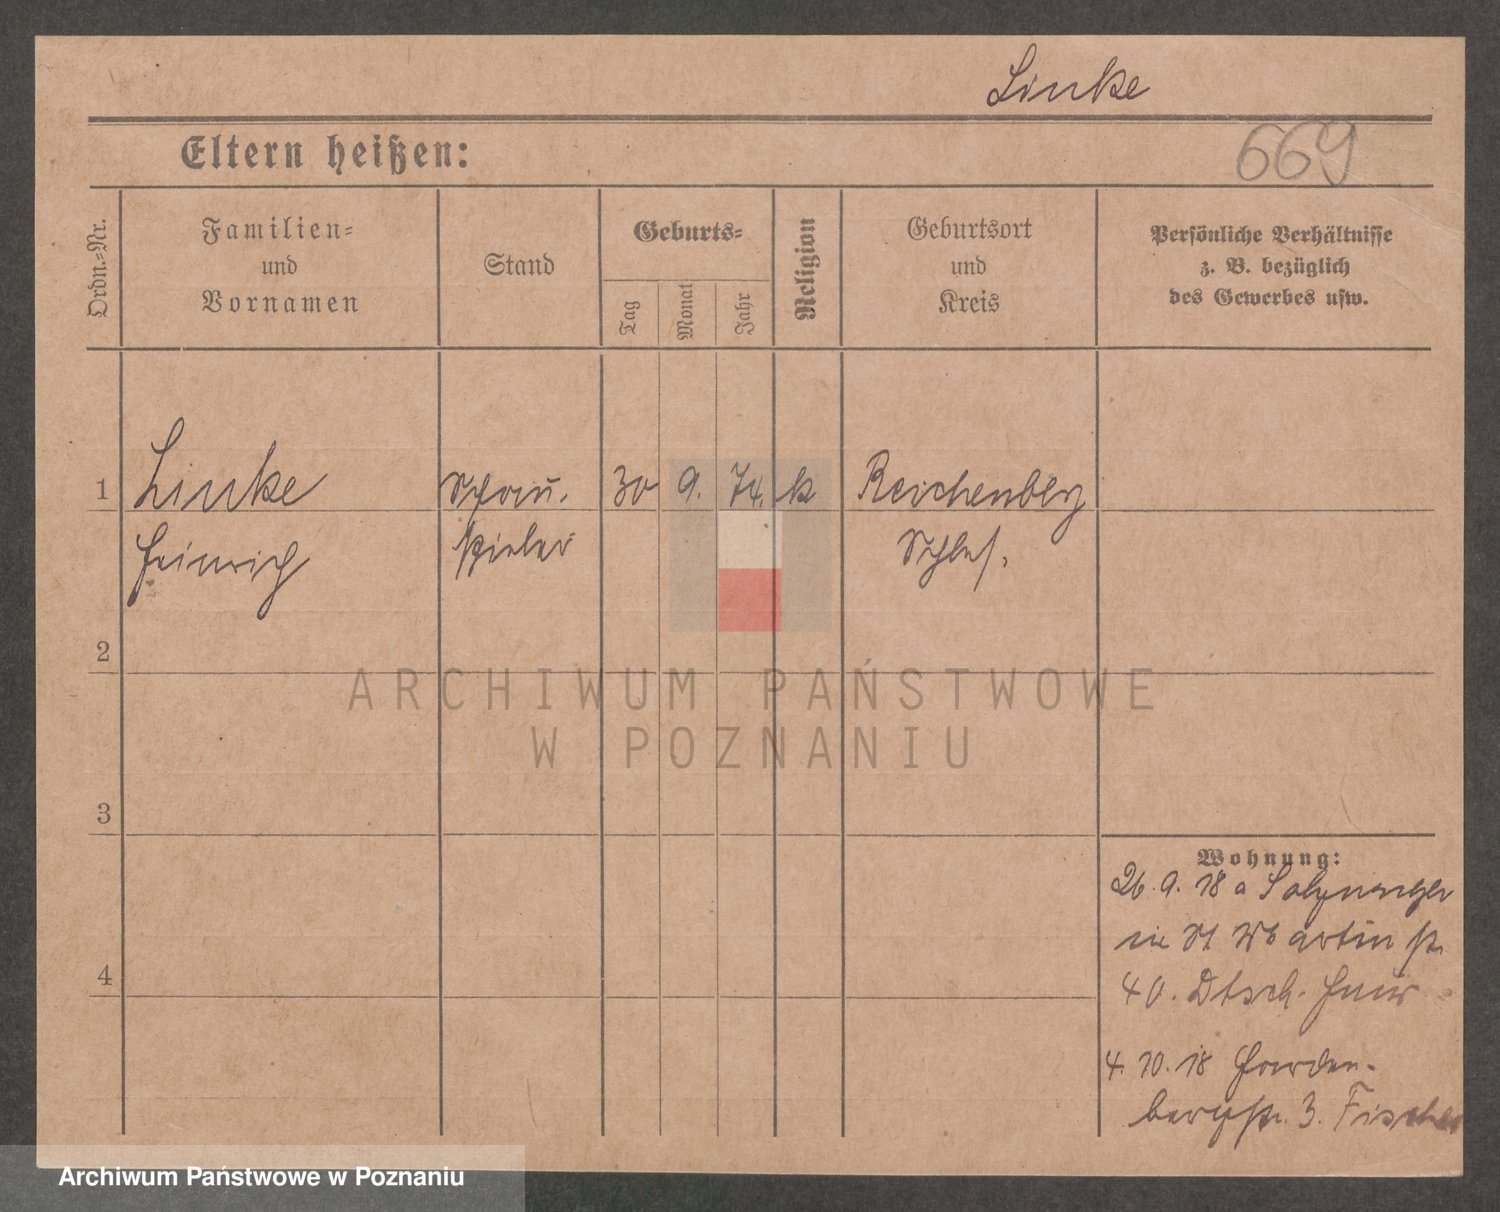 Linke
Eltern heißen:
669
Ordn.-Nr.
Familien-
und
Vornamen
Stand
Geburts-
Tag
Monat
Jahr
Religion
Geburtsort
und
Kreis
Persönliche Verhältnisse
z. B. bezüglich
des Gewerbes usw.
1 Linke Schau. 30 9. 74. k Reichenberg
Heinrich spieler Schles.
2
3
4
Wohnung:
26. 9. 18 a Salzungen
in St Martin str
40. Dtsch. Haus
4. 10. 18 Harden-
bergstr. 3. Fischer
ARCHIWUM PAŃSTWOWE
W POZNANIU
Archiwum Państwowe w Poznaniu